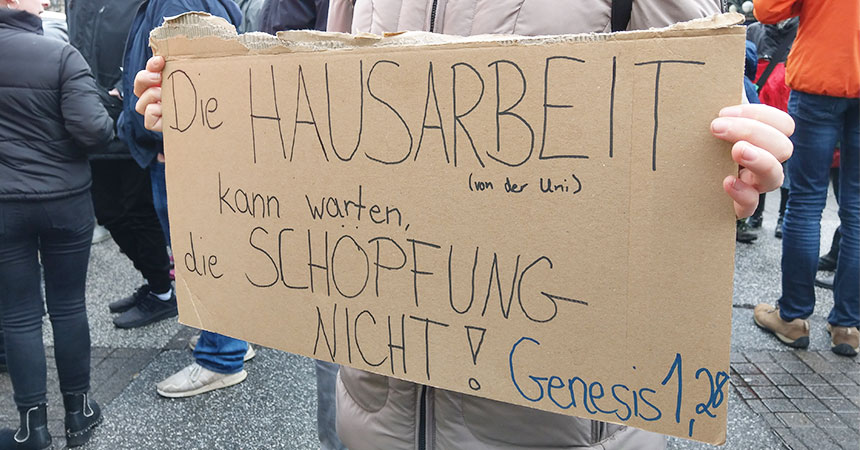 Die HAUSARBEIT
(von der Uni)
kann warten,
die SCHÖPFUNG
NICHT!
Genesis 1,28